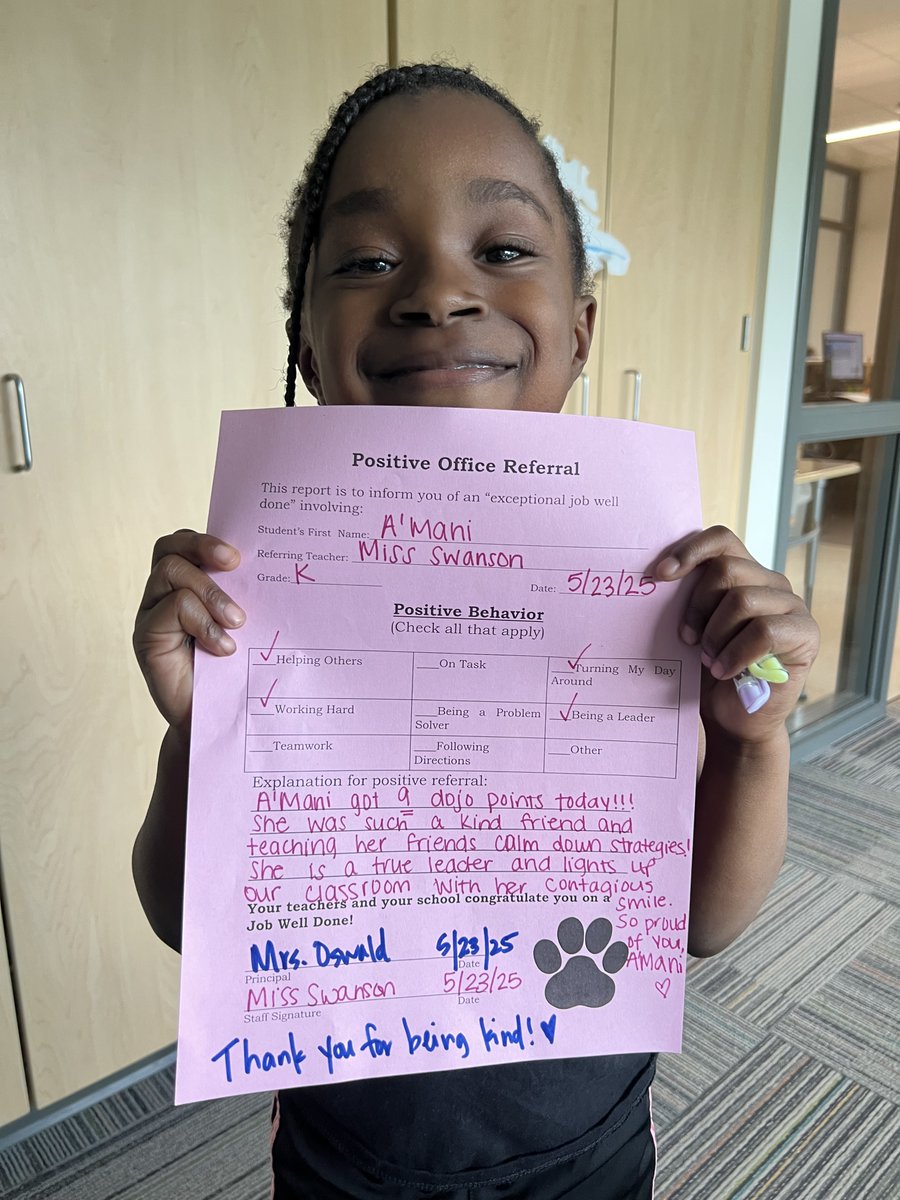 Positive Office Referral
This report is to inform you of an “exceptional job well
done” involving:
Student's First Name: A'Mani
Referring Teacher: Miss Swanson
Grade: K Date: 5/23/25
Positive Behavior
(Check all that apply)
✓ Helping Others ___On Task ✓ Turning My Day
Around
✓ Working Hard ___Being a Problem
Solver ✓ Being a Leader
___Teamwork ___Following
Directions ___Other
Explanation for positive referral:
A'Mani got 9 dojo points today!!!
She was such a kind friend and
teaching her friends calm down strategies!
She is a true leader and lights up
our classroom with her contagious
smile.
So proud
of you,
A'Mani
♡
Your teachers and your school congratulate you on a
Job Well Done!
Mrs. Oswald 5/23/25
Principal Date
Miss Swanson 5/23/25
Staff Signature Date
Thank you for being kind! ♥